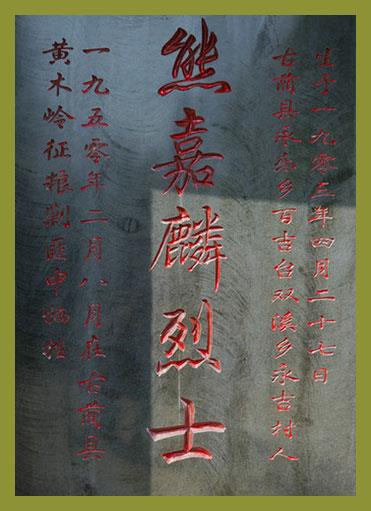 生于一九零三年四月二十七日
古蔺县乐乡百吉台双溪乡永吉村人
熊嘉麟烈士
一九五零年二月八月在古蔺县
黄木岭征粮剿匪中牺牲